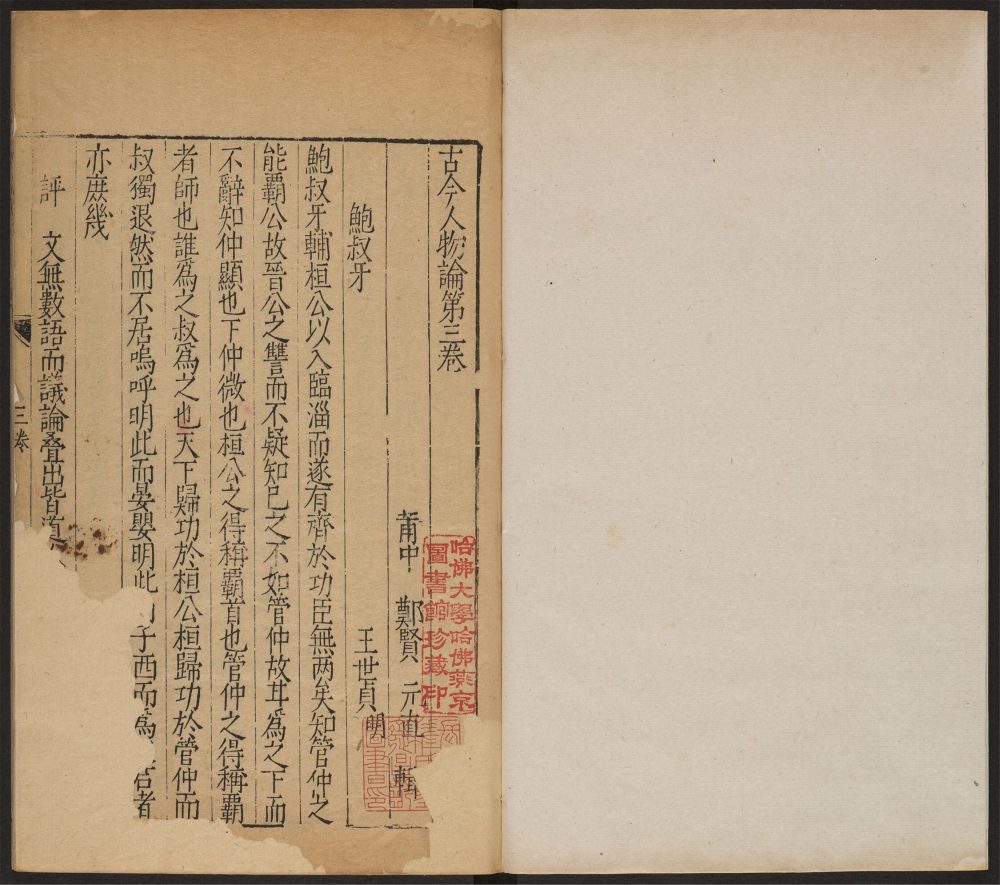 古今人物論第三卷
莆中 鄭賢 元直 輯
鮑叔牙 王世貞 明
鮑叔牙輔桓公以入臨淄而遂有齊於功臣無两矣知管仲之
能霸公故晉公之讐而不疑知已之不如管仲故甘為之下而
不辭知仲顯也下仲微也桓公之得稱霸首也管仲之得稱霸
者師也誰為之叔為之也天下歸功於桓公桓歸功於管仲而
叔獨退然而不居嗚呼明此而晏嬰明此 子西而為 者
亦庶幾
評 文無數語而議論叠出皆
三卷
哈佛大學哈佛燕京
圖書館珍藏印